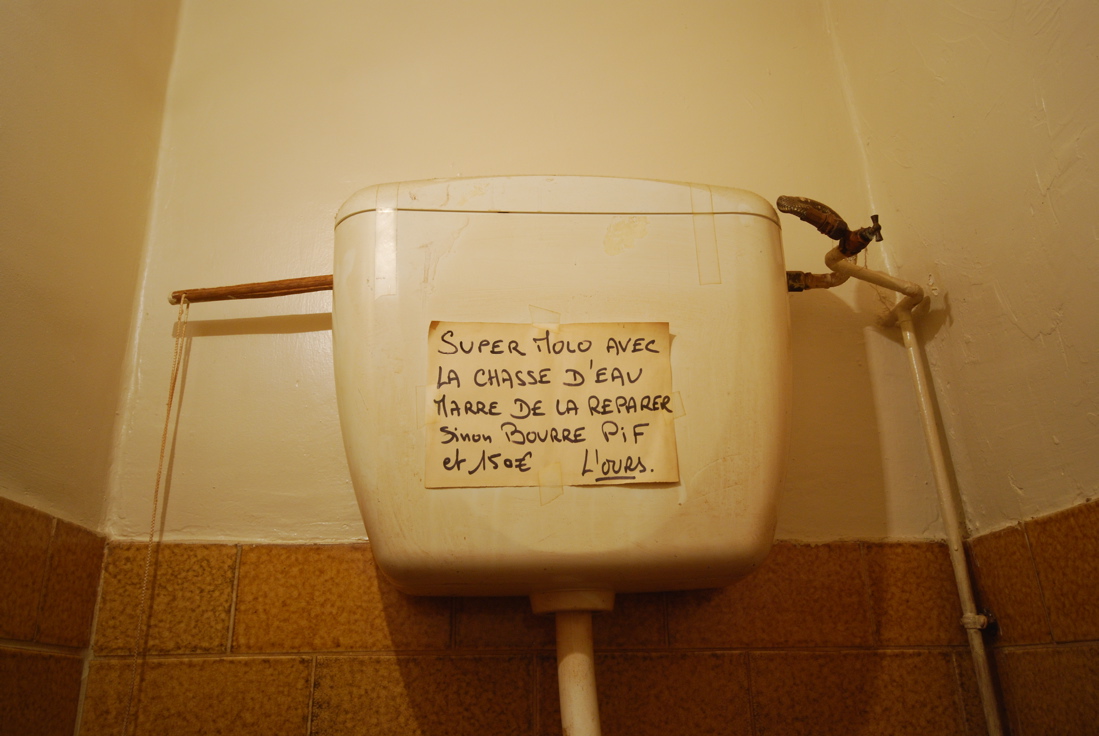 SUPER MOLO AVEC
LA CHASSE D'EAU
MARRE DE LA REPARER
Sinon BOURRE PiF
et 150€ L'OURS.